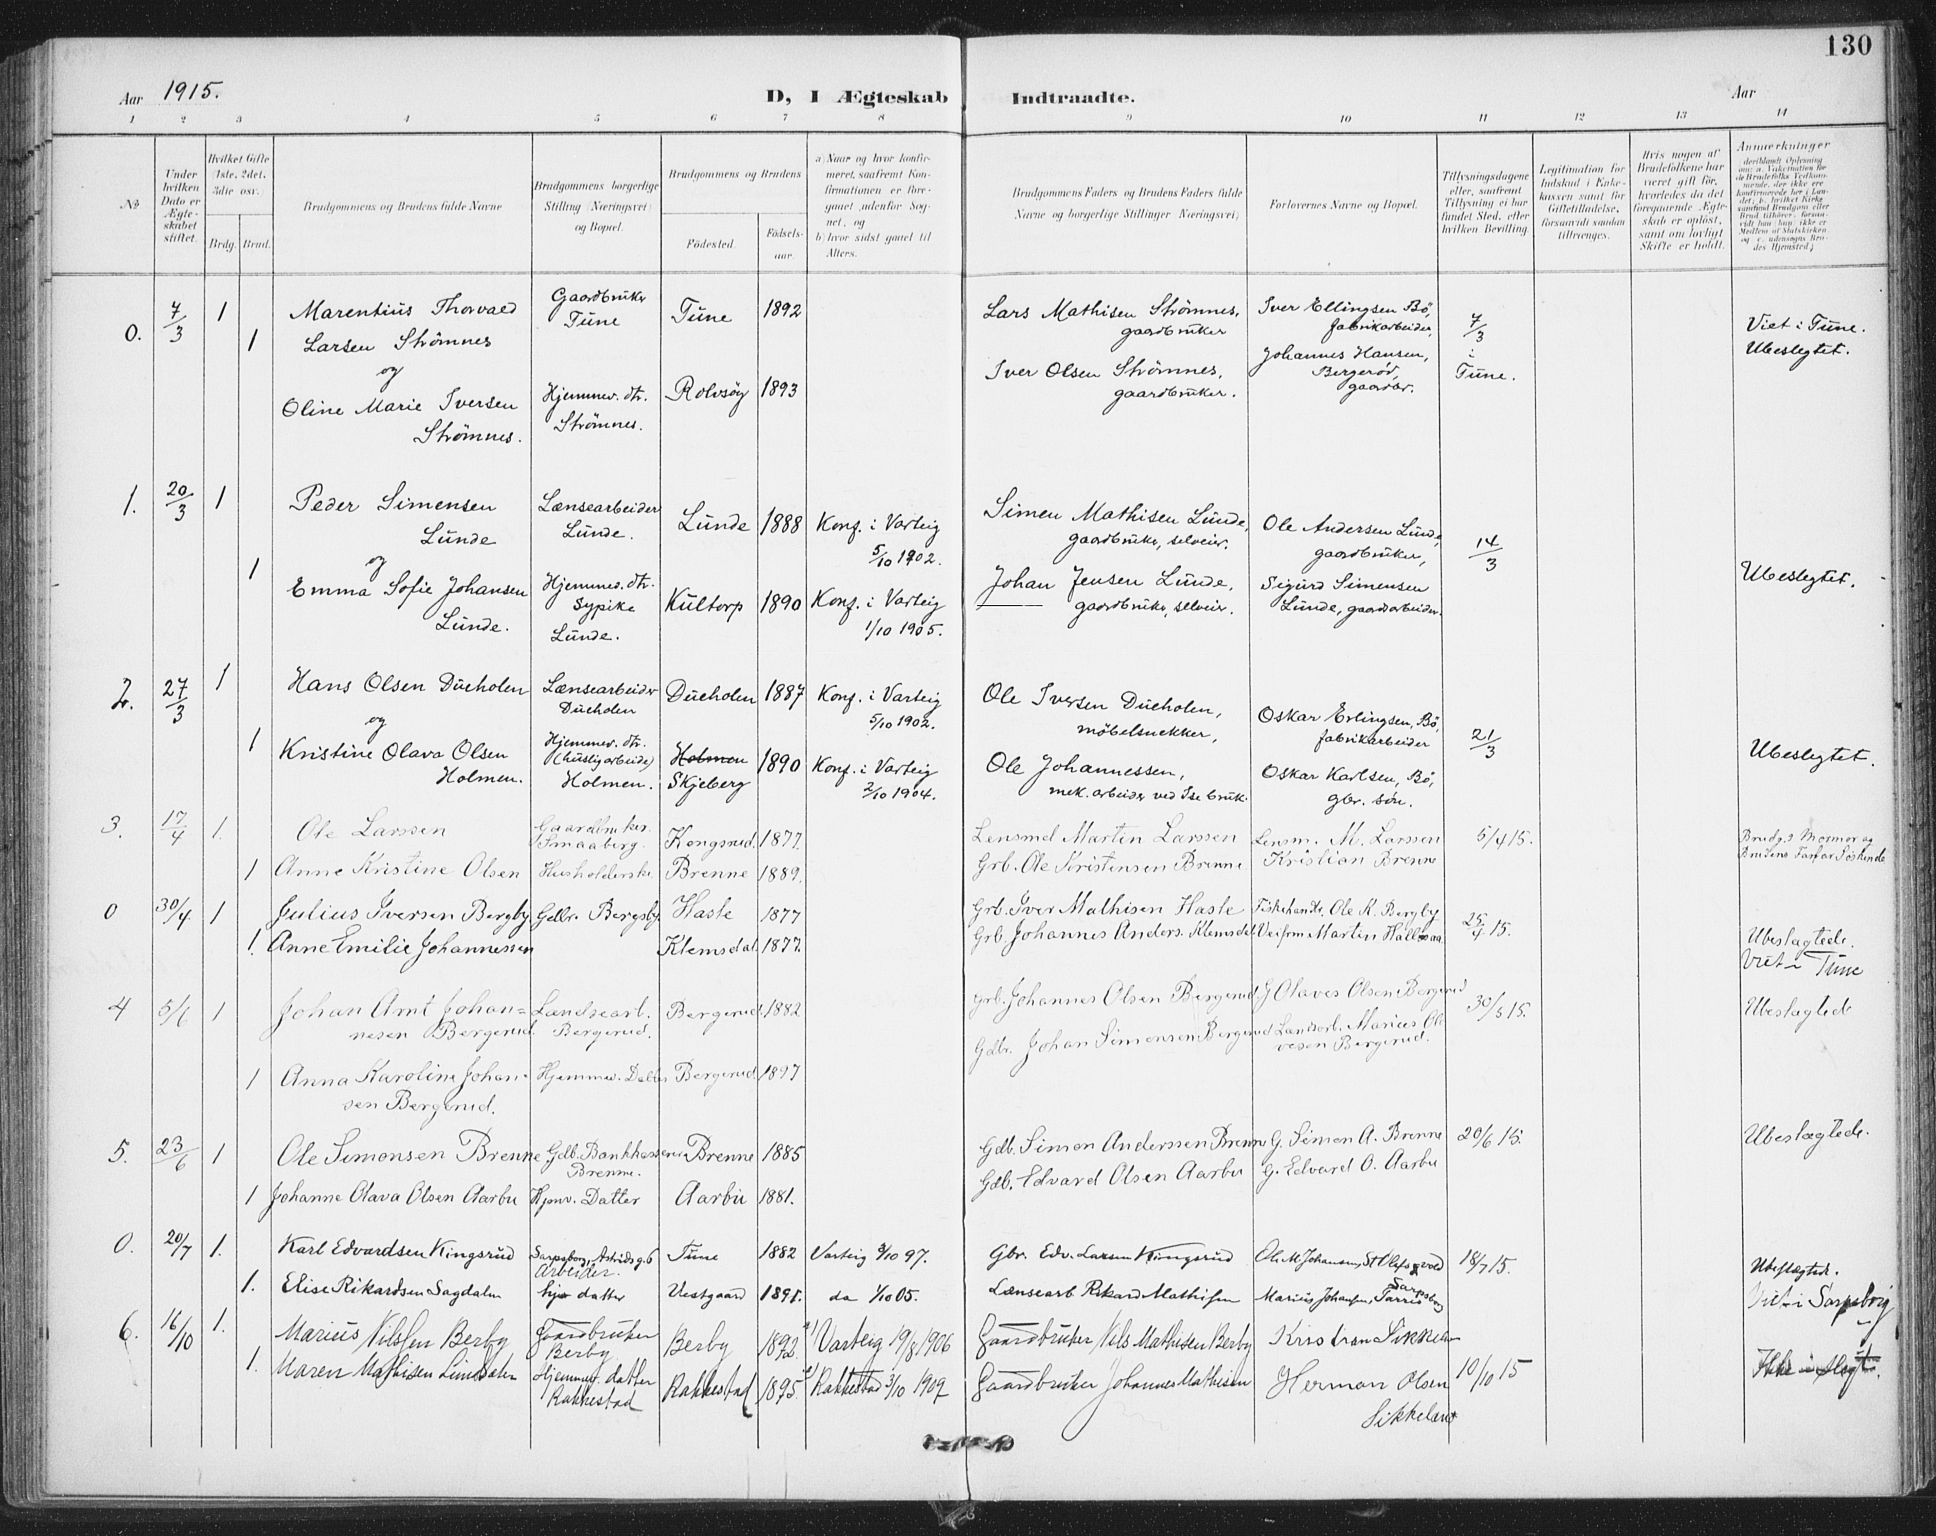 130
Aar 1915.
D, I Ægteskab Indtraadte.
Aar
1 2 3 4 5 6 7 8 9 10 11 12 13 14
No
Under hvilken Dato er Ægteskabet stiftet.
Hvilket Gifte (1ste, 2det, 3die osv.
Brdg. Brud.
Brudgommens og Brudens fulde Navne
Brudgommens borgerlige Stilling (Næringsvei) og Bopæl.
Brudgommens og Brudens
Fødested.
Fødselsaar.
a) Naar og hvor konfirmeret, saafremt Konfirmationen er foregaaet udenfor Sognet, og
b) hvor sidst gaaet til Alters.
Brudgommens Faders og Brudens Faders fulde Navne og borgerlige Stillinger (Næringsvei)
Forlovernes Navne og Bopæl.
Tillysningsdagene eller, saafremt Tillysning ei har fundet Sted, efter hvilken Bevilling.
Legitimation for Indskud i Enkekassen samt for Giftetilladelse, forsaavidt saadan tiltrænges.
Hvis nogen af Brudefolkene har været gift før, hvorledes da det foregaaende Ægteskab er opløst, samt om lovligt Skifte er holdt.
Anmerkninger
0. 7/3 1 Marentius Thorvald Larsen Strömnes Gaardbruker Tune Tune 1892 Lars Mathisen Strömnes, gaardbruker Iver Ellingsen Bö, fabrikarbeider, 7/3 i Tune. Viet i Tune. Ubeslegtet.
og
1 Oline Marie Iversen Strömnes. Hjemmev. dtr. Strömnes. Rolvsöy 1893 Iver Olsen Strömnes, gaardbruker. Johannes Hansen, Bergeröd, gaardbr.
1. 20/3 1 Peder Simensen Lunde Lænsearbeider Lunde. Lunde 1888 Konf. i Varteig 5/10 1902. Simen Mathisen Lunde, gaardbruker, selveier. Ole Andersen Lunde, gaardbruker, 14/3 Ubeslegtet.
og
1 Emma Sofie Johansen Lunde. Hjemmev. dtr. Sypike Lunde. Kultorp 1890 Konf. i Varteig 1/10 1905. Johan Jensen Lunde, gaardbruker, selveier. Sigurd Simensen Lunde, gaardarbeider.
2. 27/3 1 Hans Olsen Dueholen Lænsearbeider Dueholen Dueholen 1887 Konf. i Varteig 5/10 1902. Ole Iversen Dueholen, möbelsnekker, Oskar Erlingsen, Bö, fabrikarbeider 21/3 Ubeslegtet.
og
1 Kristine Olava Olsen Holmen. Hjemmev. dtr. (huslig arbeide) Holmen. Holmen Skjeberg 1890 Konf. i Varteig 2/10 1904. Ole Johannessen, mek. arbeider ved Ise bruk. Oskar Karlsen, Bö, gbr. sön.
3. 17/4 1. Ole Larssen Gaardbruker. Smaaberg. Kongsrud. 1877. Lensmd Martin Larssen Lensm. M. Larssen 5/4 15. Brudg.s Mormor og Brudens Farfar Söskende
1 Anne Kristine Olsen Husholderske Brenne 1889. Grb. Ole Kristensen Brenne Kristian Brenne
0 30/4 1 Julius Iversen Bergby Gdbr. Bergby. Hasle 1877 Grb. Iver Mathisen Hasle Fiskehandl. Ole K. Bergby 25/4 15. Ubeslagtede. Viet i Tune
1. Anne Emilie Johannessen Klemsdal 1877. Grb. Johannes Anders. Klemsdal. Veifrm Martin
4 5/6 1 Johan Arnt Johannesen Bergerud. Landsearb. Bergerud. Bergerud. 1882 Grb. Johannes Olsen Bergerud. G Olaves Olsen Bergerud 30/5 15. Ubeslagtede
1 Anna Karoline Johansen Bergerud. Hjemmev. Datter Bergerud. 1897 Gdbr. Johan Simonsen Bergerud Landsarb. Marius Olavesen Bergerud.
5. 23/6 1 Ole Simonsen Brenne Gdb. Bankkasserer Brenne. Brenne 1885 Gdb. Simon Anderssen Brenne G. Simon A. Brenne 20/6 15. Ubeslagtede.
1 Johanne Olava Olsen Aarbu Hjmv. Datter Aarbu 1881. Gdb. Edvard Olsen Aarbu G. Edvard O. Aarbu
0. 20/7 1. Karl Edvardsen Kingsrud Sarpsborg, Astridsg. 6 Arbeider. Tune 1882 Varteig 3/10 97. Gbr. Edv. Larsen Kingsrud Ole M Johansen, St Olafs vold 18/7 15. Ubeslægtede. Viet i Sarpsborg
1. Elise Rikardsen Sagdalen hjv datter Vestgaard 1891. do 1/10 05. Lænsearb Rikard Mathisen Marius Johansen, Tarris Sarpsborg
6. 16/10 1. Marius Nilssen Berby Gaardbruker Berby Berby 1892 a) Varteig 19/8 1906 Gaardbruker Nils Mathisen Berby Kristian Sikkeland 10/10 15 Ikke i slegt.
1. Maren Mathisen Hjemmev. datter Rakkestad Rakkestad 1895 a) Rakkestad 3/10 1909 Gaardbruker Johannes Mathisen Herman Olsen Sikkeland